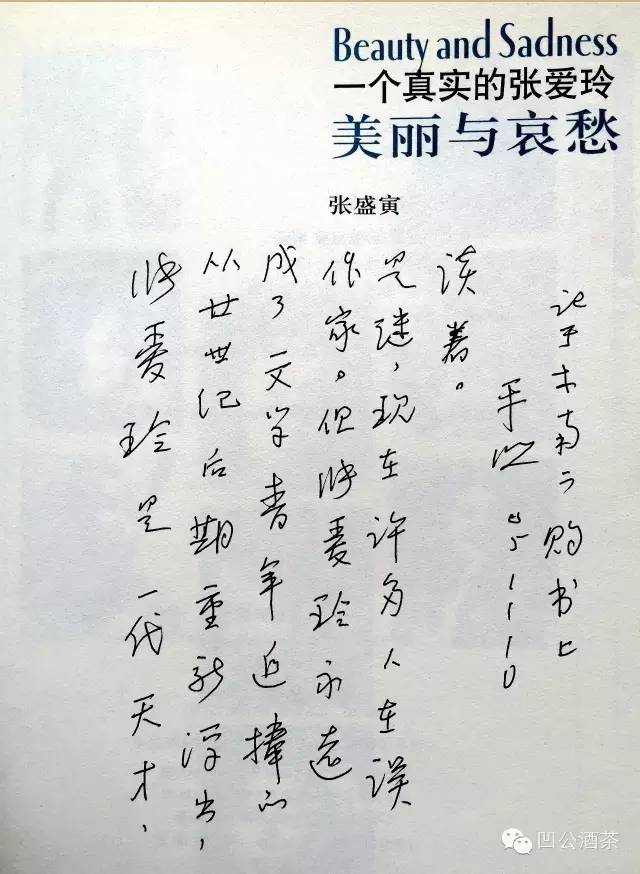 Beauty and Sadness
一个真实的张爱玲
美丽与哀愁
张盛寅
张爱玲是一代天才，
从廿世纪后期重新浮出，
成了文学青年追捧的
作家。但张爱玲永远
是谜，现在许多人在误
读着。
平凹 05.11.10
记于木南所购书上
凹公酒茶